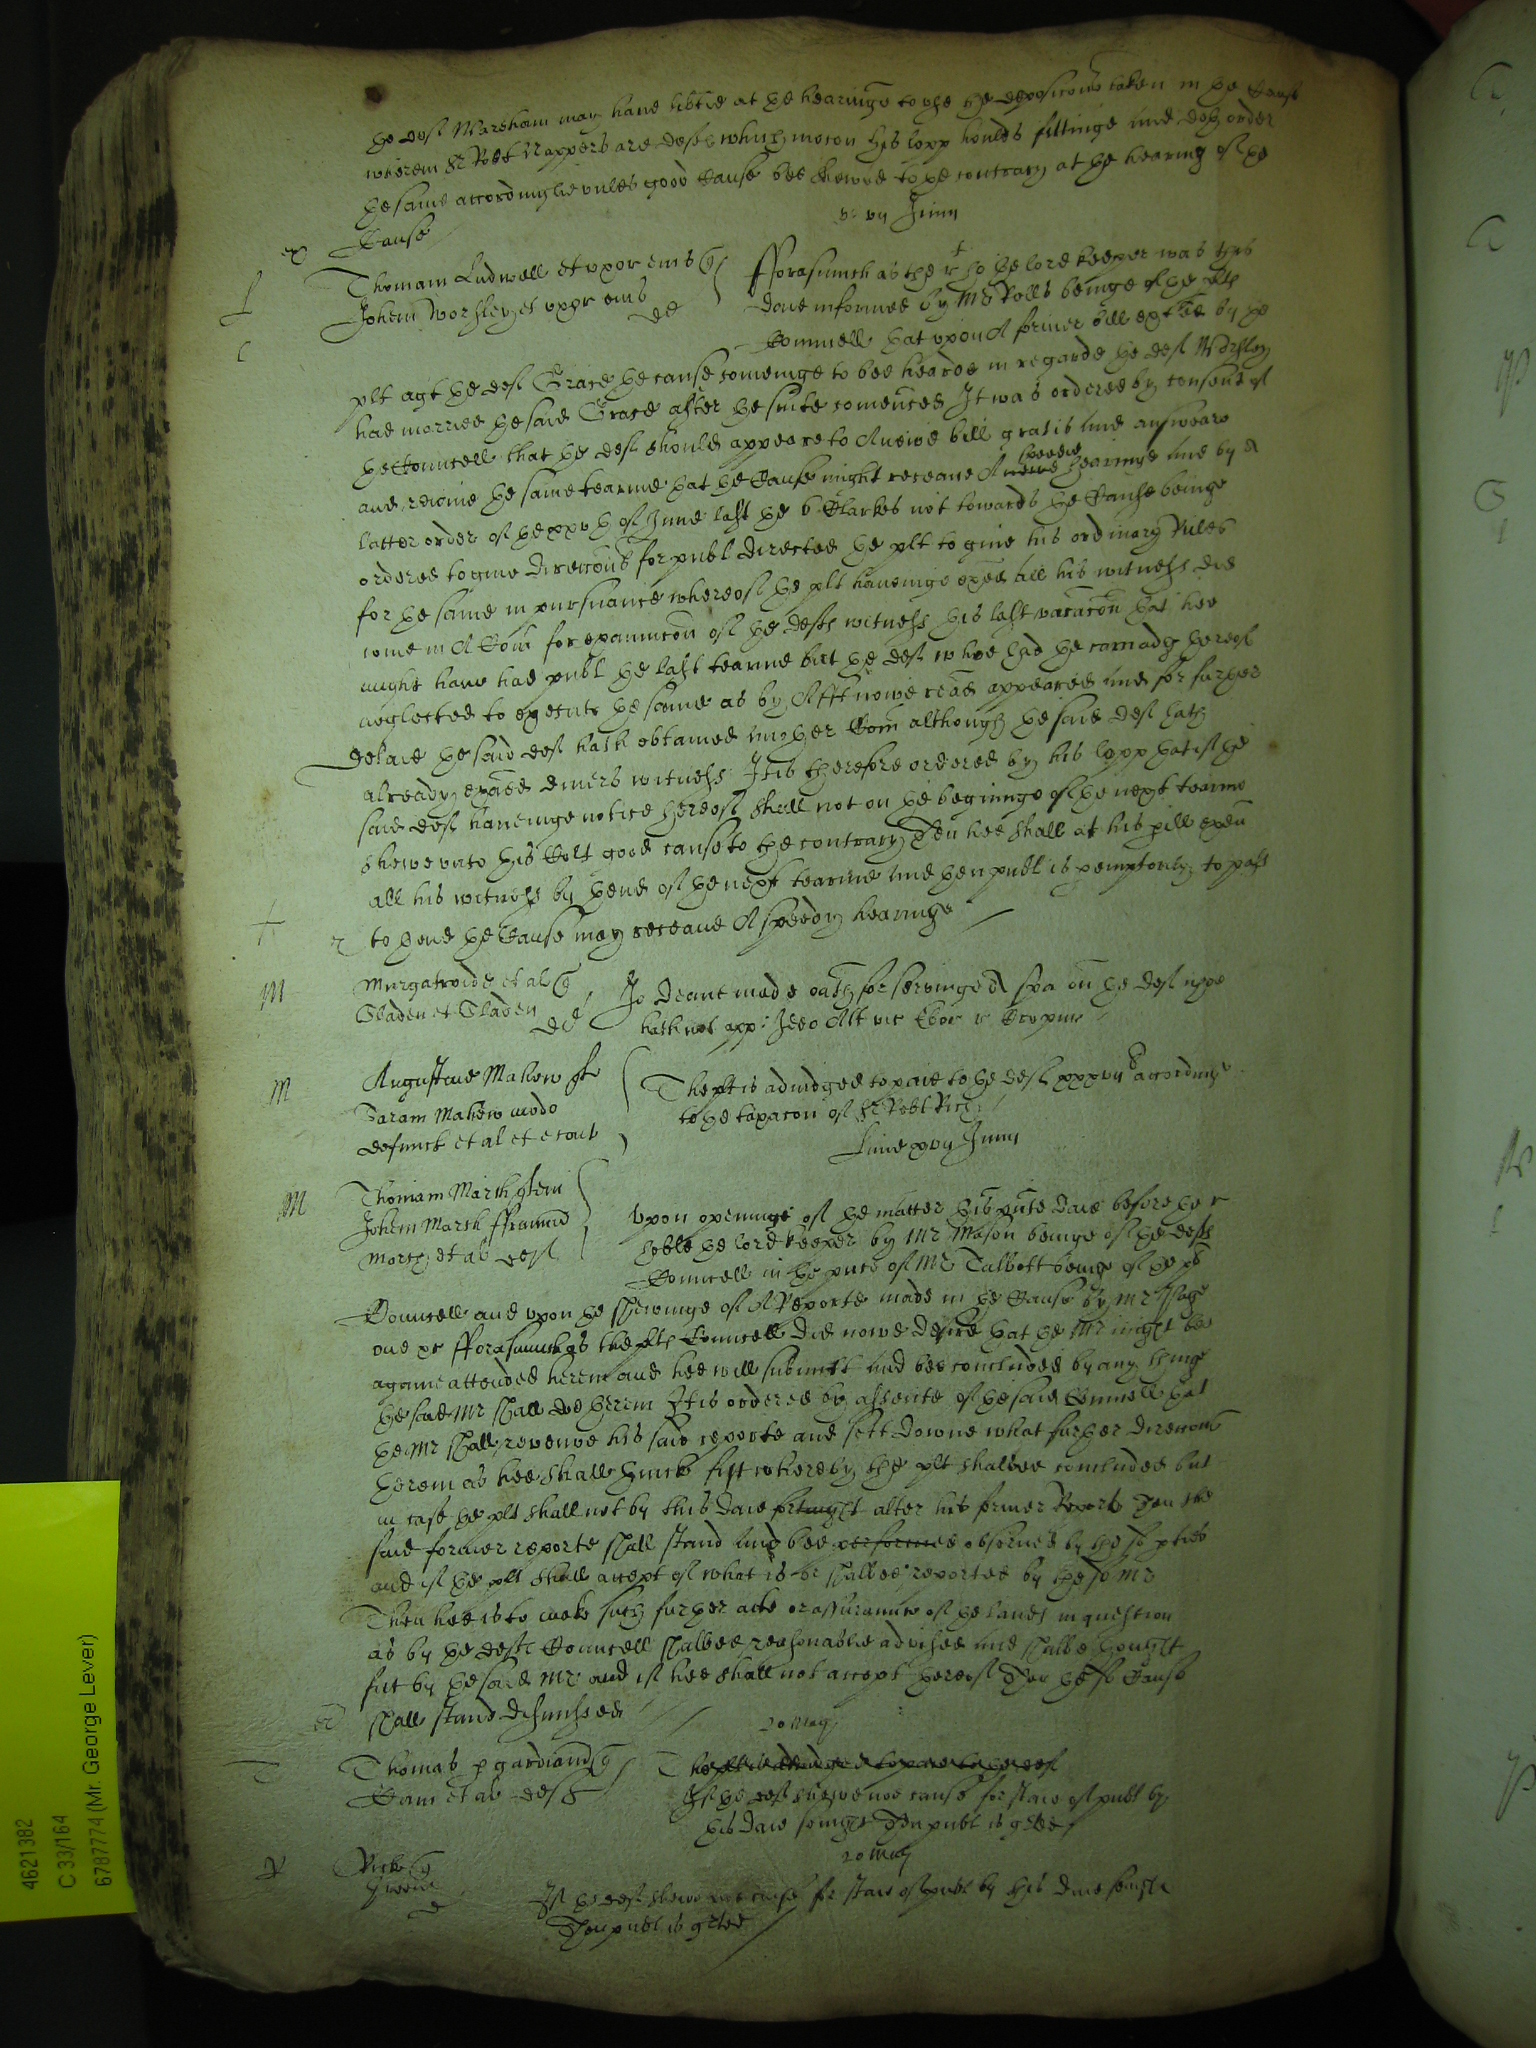 the deft Marsham may have lib̃tie at the hearinge to use the deposicons taken in the Cause
wherein Sr Robt Nappers are defts which mocon his lopp houlds fittinge and doth order
the same accordinglie unles good Cause bee shewed to the contrary at the hearing of the
Cause
Junii
Thomam Ludwell et uxor eius q
Johem Worsley et uxor eius
dd
fforasmuch as the r ho the lord keeper was this
daie informed by Mr Rolls beinge of the plts
Councell that upon A former bill exhited by the
plt agt the deft Grace the cause cominge to bee heard in regarde the deft Worsley
had married the said Grace after the suite comenced It was ordered by consent of
the Councell that the deft should appeare to A newe bill gratis and answeare
and reioine the same tearme that the Cause might receave A newe hearinge and by a
speedie
latter order of the of June last the 6 Clarkes not towards the Cause beinge
ordered to give direccons for publ directed the plt to give his ordinary Rules
for the same in pursuance whereof the plt haveinge exed all his witness did
ioine in A Com for examincon of the defts witness this last vacacon that hee
might have had publ the last tearme but the deft whoe had the carriadg thereof
neglected to execute the same as by Afft nowe read appeared and for further
delaie the said deft hath obtained another Com although the said deft hath
already exaed divers witness It is therefore ordered by his lopp that if the
said deft haveinge notice hereof shall not on the beginnge of the next tearme
shewe unto this Cort good cause to the contrary Then hee shall at his pill exem
all his witness by thend of the next tearme and then publ is pemptorily to pass
to thend the Cause may receave A speedy hearinge
M
Murgatroide et al q
Gladen et Gladen
dd
Jo Deane made oath for servinge A spa on the deft nppe
hath not app: Ideo Att vic Ebor r Cropmr
M
Augustine Mahew
Saram Mahew modo
defunct et al et e cont
The plt is adiudged to paie to the deft according
to the taxacon of Sr Robt Rich
Junii
M
Thomam Marsh
Johem Marsh ffrannc
Marsh et al deft
Upon openinge of the matter this pnte daie before the r
hoble the lord keeper by Mr Mason beinge of the defts
Councell in the pnce of Mr Talbott beinge of the plts
Councell and upon the shewinge of A Reporte made in the Cause by Mr Page
one xc fforasmuch as the plts Councell did nowe desire that the Mr might bee
againe attended herein and hee will submitt and bee concluded by any thinge
the said Mr shall doe therein It is ordered by assente of the said Councell that
the Mr shall reveiwe his said reporte and sett downe what further direccons
therein as hee shall thinke fitt whereby the plt shalbee concluded but
in case the plt shall not by this daie fortnight alter his former Reporte Then the
said former reporte shall stand and bee performed observed by the sd pties
and if the plt shall accept of what is or shalbee reported by the sd Mr
Then hee is to make such further acte or assurannce of the lands in question
as by the defts Councell shalbee reasonablie advised and shalbe thought
fitt by the said Mr and if hee shall not accept thereof Then the sd Cause
shall stand dismissed
20 May
Thomas p gardiand q
Cam et al defts
The plt is adiudged to paie to the deft
If the deft shewe noe cause for staie of publ by
this daie senight Then publ is gted
20 May
If the deft shewe noe cause for staie of publ by this daie senight
Then publ is gted
4621382
C 33/164
6787774 (Mr. George Lever)